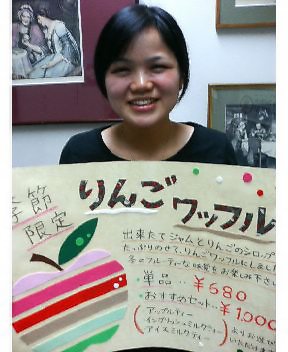 季節
限定
りんご
ワッフル
出来たてジャムとりんごのシロップ
たっぷりのせて、りんごワッフルにしました
冬のフルーティーな味覚をお楽しみ下さい
単品… ¥680
おすすめセット… ¥1,000
(アップルティー
イングリッシュミルクティー
アイスミルクティー)
よりお選び
いただけます